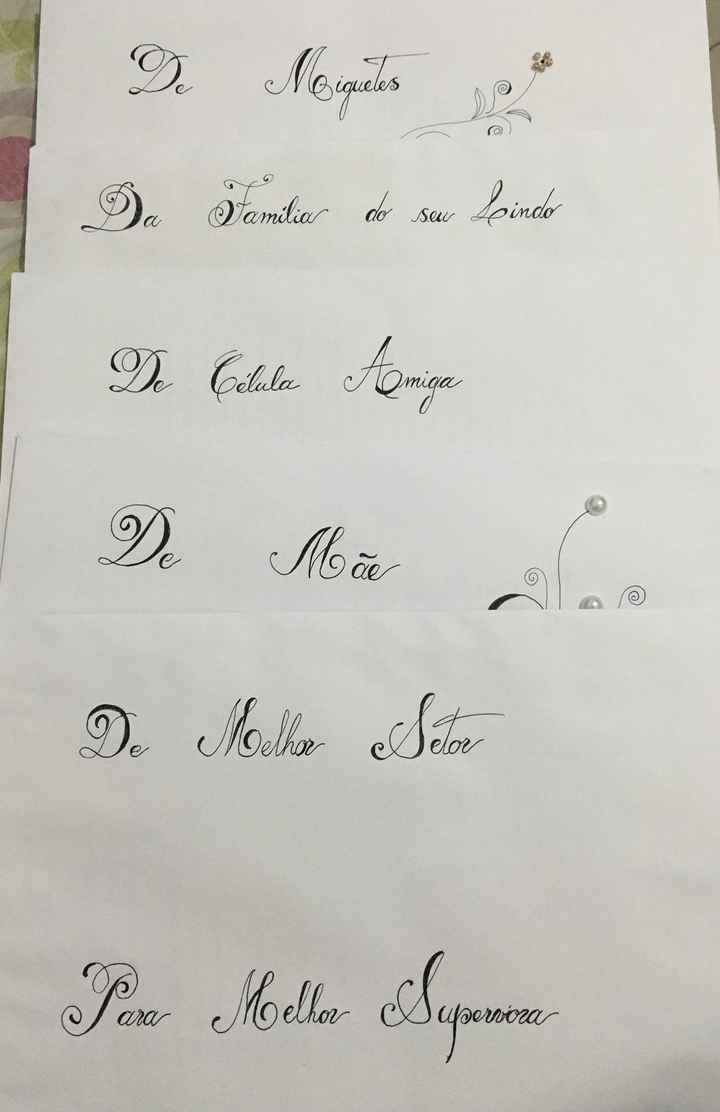 De Miguetes
Da Família do seu Lindo
De Célula Amiga
De Mãe
De Melhor Setor
Para Melhor Supervisora